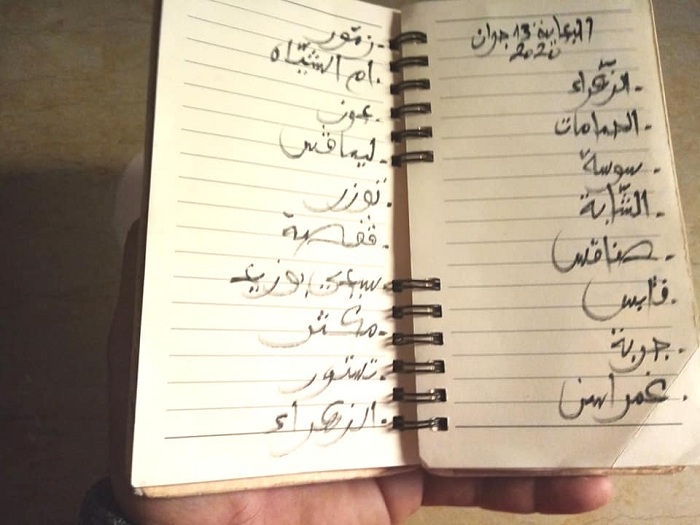 البداية 13 جوان
2020
. الزّهراء
. الحمامات
. سوسة
. الشّابة
. صفاقس
. قابس
. جربة
. غمراسن
. زمّور
. ام الشيّاه
. عون
. ليماقس
. توزر
. قفصة
. سيدي بوزيد
. مكثر
. تستور
. الزهراء